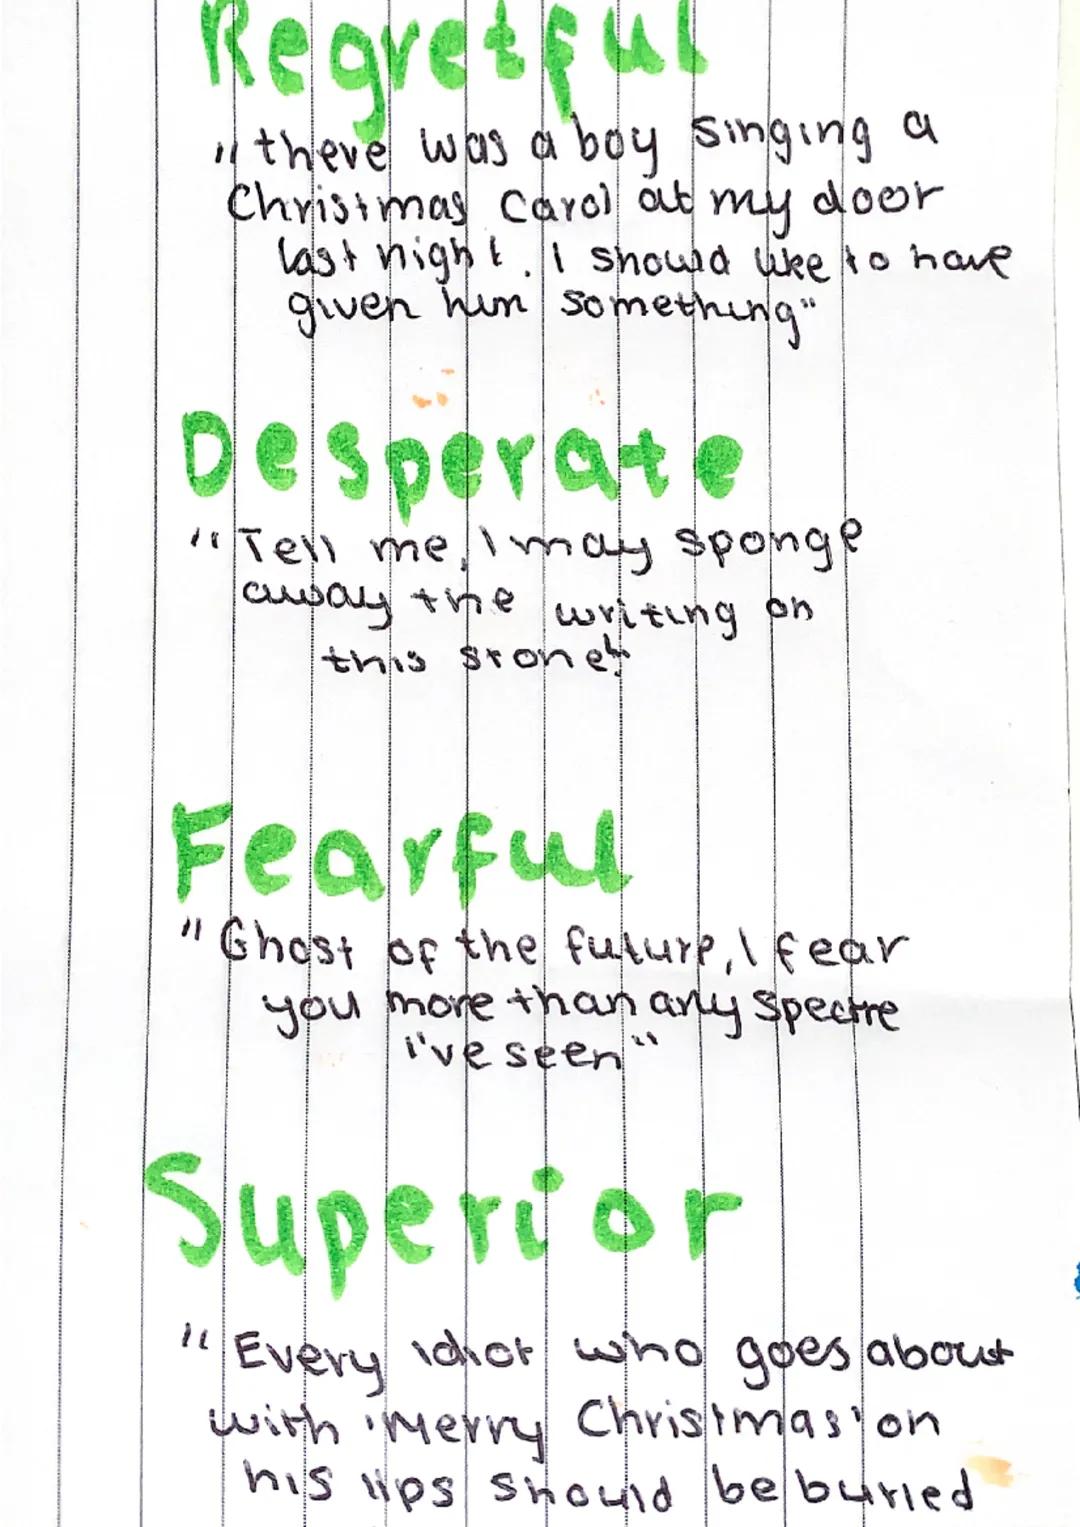 Regretful
"there was a boy singing a
Christmas Carol at my door
last night. I should like to have
given him something"
Desperate
"Tell me, I may sponge
away the writing on
this stone!"
Fearful
"Ghost of the future, I fear
you more than any spectre
I've seen"
Superior
"Every idiot who goes about
with 'Merry Christmas' on
his lips should be buried